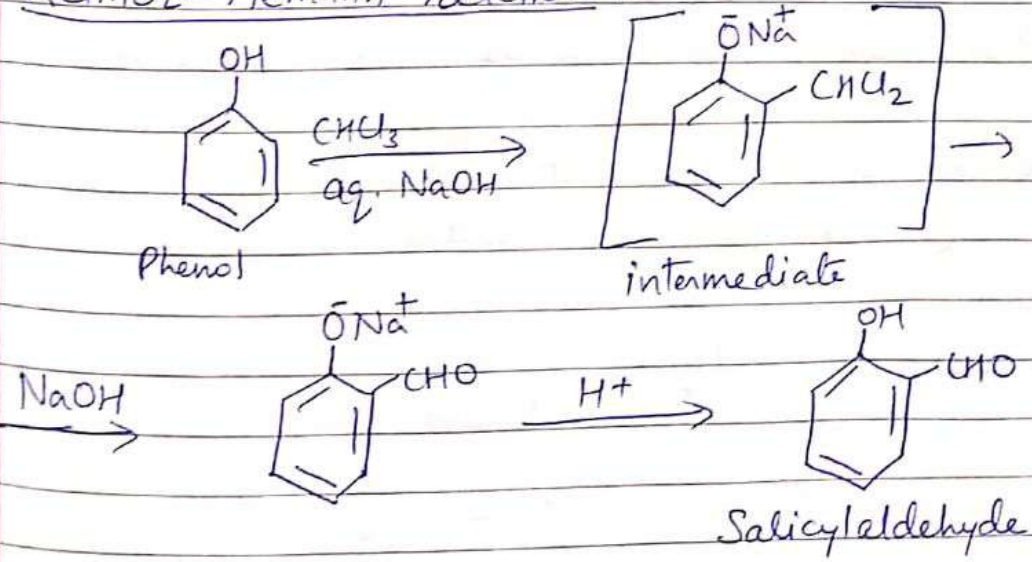 OH
CHCl₃
aq. NaOH
Phenol
ŌNa⁺
CHCl₂
intermediate
NaOH
ŌNa⁺
CHO
H+
OH
CHO
Salicylaldehyde